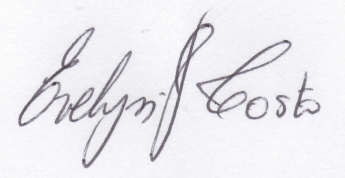 Evelyn Costa